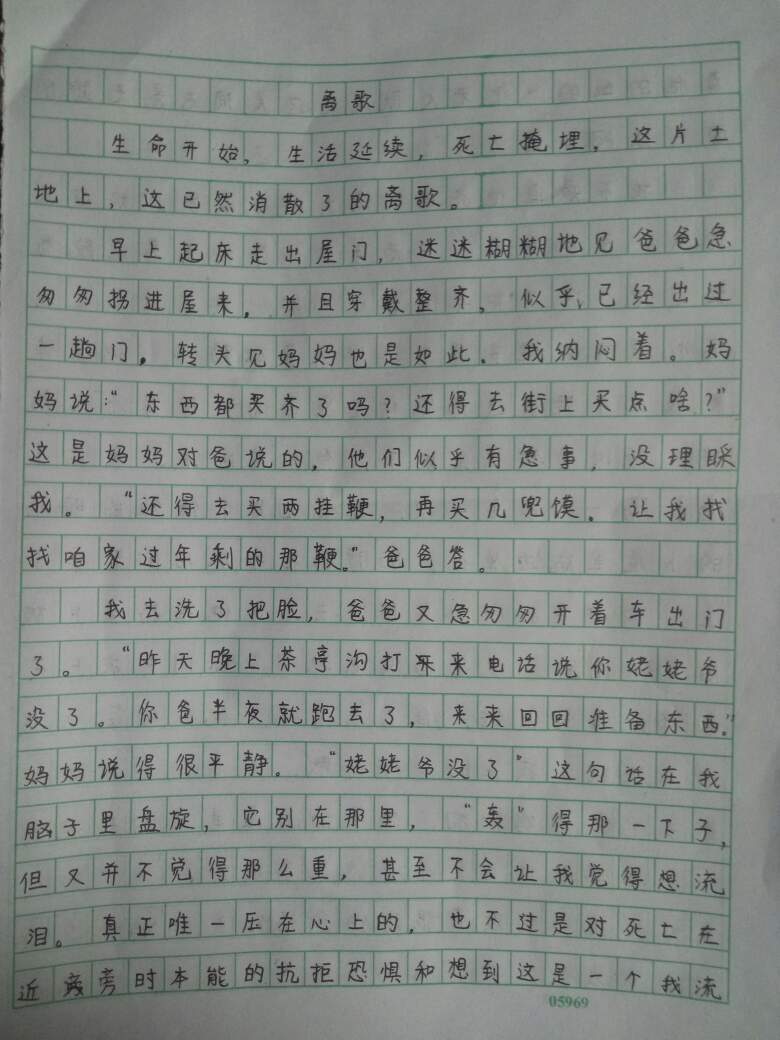 离歌
生命开始，生活延续，死亡掩埋。这片土
地上，这已然消散了的离歌。
早上起床走出屋门，迷迷糊糊地见爸爸急
匆匆拐进屋来，并且穿戴整齐，似乎已经出过
一趟门。转头见妈妈也是如此。我纳闷着。妈
妈说：“东西都买齐了吗？还得去街上买点啥？”
这是妈妈对爸说的，他们似乎有急事，没理睬
我。“还得去买两挂鞭，再买几兜馍。让我找
找咱家过年剩的那鞭。”爸爸答。
我去洗了把脸，爸爸又急匆匆开着车出门
了。“昨天晚上茶亭沟打来电话说你姥姥爷
没了。你爸半夜就跑去了，来来回回准备东西。”
妈妈说得很平静。“姥姥爷没了”这句话在我
脑子里盘旋，它别在那里，“轰”得那一下子，
但又并不觉得那么重，甚至不会让我觉得想流
泪。真正唯一压在心上的，也不过是对死亡在
近旁时本能的抗拒恐惧和想到这是一个我流
05969